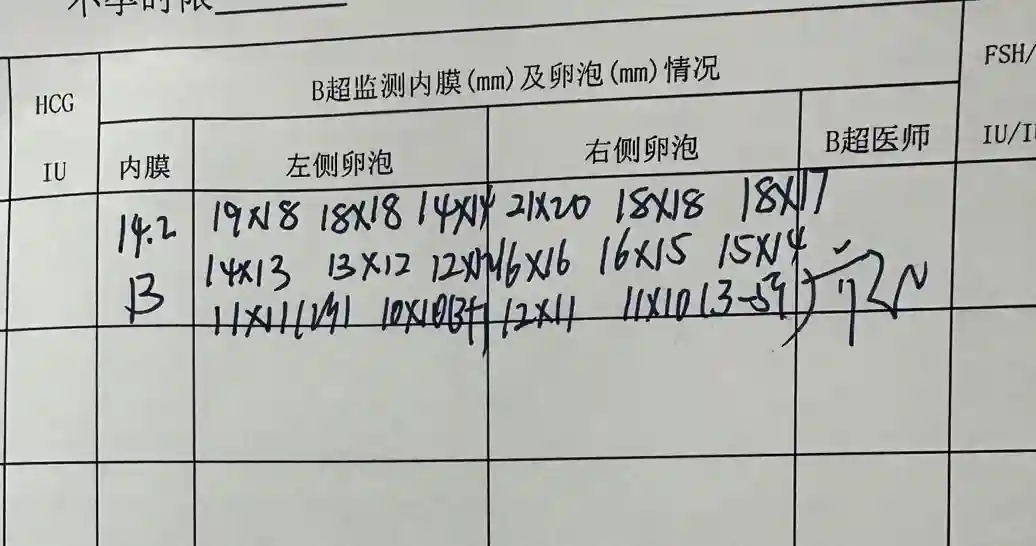 HCG
IU
B超监测内膜(mm)及卵泡(mm)情况
FSH/
IU/I
内膜 左侧卵泡 右侧卵泡 B超医师
14.2 19X18 18X18 14X14 21X20 18X18 18X17
B 14X13 13X12 12X12 16X16 16X15 15X14
11X11 10X10 12X11 11X10